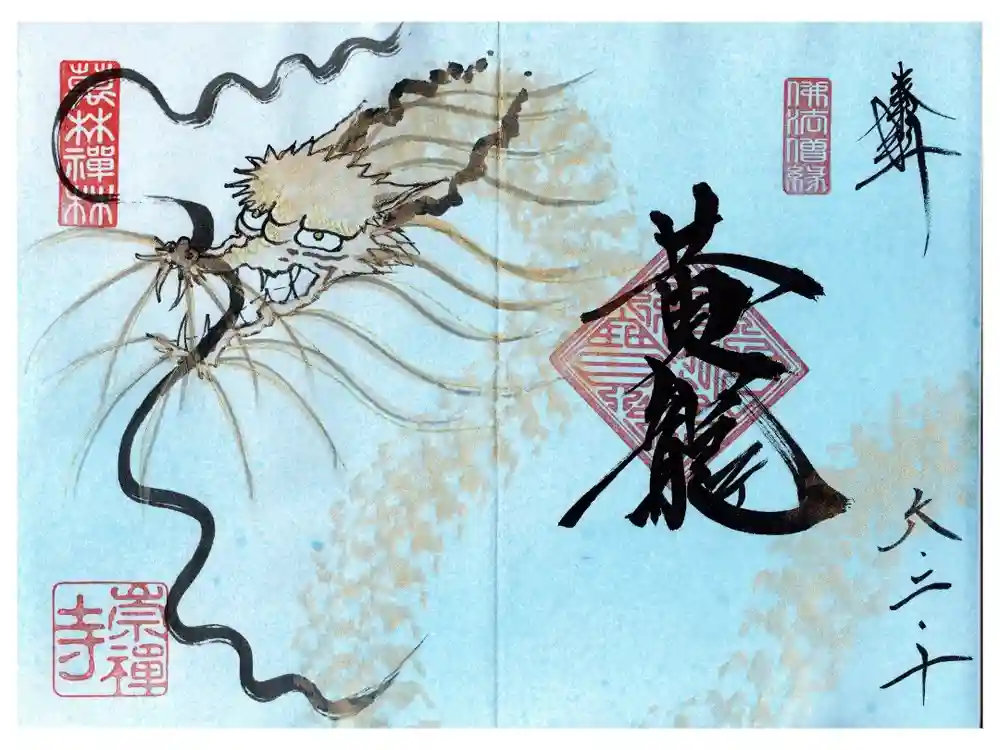 奉拝
佛法僧縁
黄龍
六・二・十
禪林
崇禪
寺